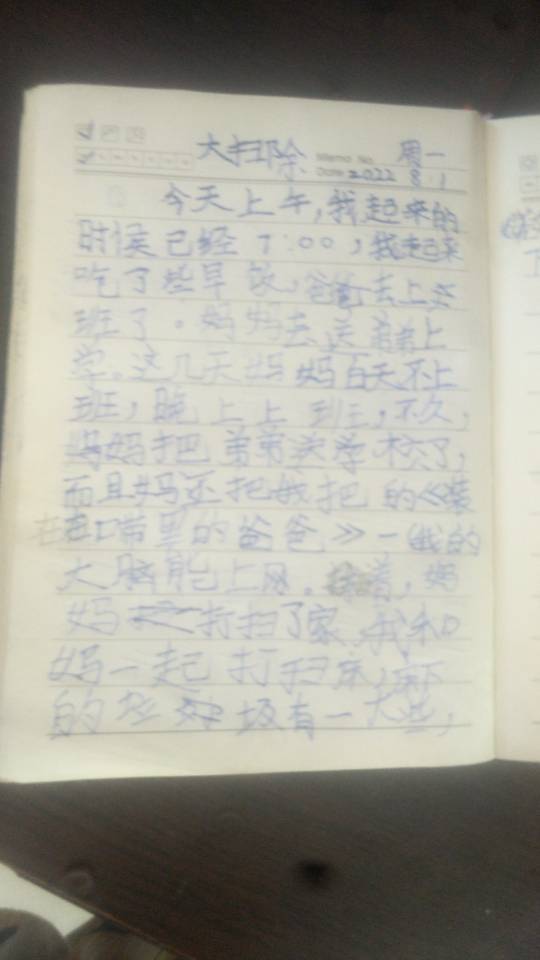 大扫除 Memo No. 周一
Date 2022 8.1
今天上午，我起来的
时侯已经7:00，我起来
吃了些早饭，爸爸去上
班了。妈妈去送弟弟上
学。这几天妈妈白天不上
班，晚上上班，不久，
妈妈把弟弟送学校了，
而且妈还把我把的《装
在口袋里的爸爸》一
大脑能上网。接着，妈
妈打扫了家，我和
妈一起打扫床，
的垃圾有一大些，